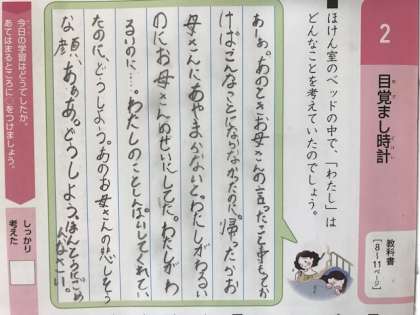 2
目覚まし時計
教科書
[8〜11ページ]
ほけん室のベッドの中で、「わたし」は
どんなことを考えていたのでしょう。
あーあ。あのときお母さんの言ったこと事もってお
けばこんなことにならなかったのに。帰ったがお
母さんにあやまらないと。わたしがわるい
のにお母さんのせいにしてた。わたしがわ
るいのに…。わたしのことしんぱいしてくれてい
たのに、どうしよう。あのお母さんの悲しそう
な顔、あぁあ。どうしよう。ほんとうにごめ
んなさい。
今日の学習はどうでしたか。
あてはまるところに○をつけましょう。
しっかり
考えた